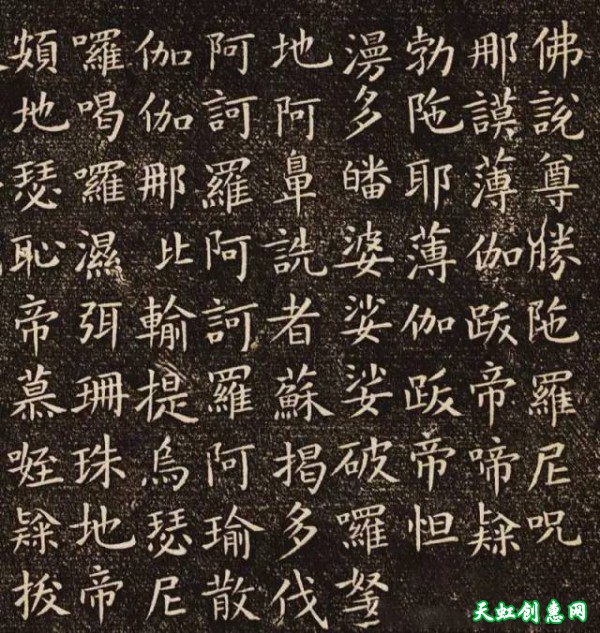 佛說尊勝陁羅尼呪
那謨薄伽跋帝啼隸
勃陁耶薄伽跋帝怛
漫多皤婆娑娑破囉拏
地阿鼻詵者蘇揭多伐
阿訶羅阿訶羅阿瑜散
伽伽那比輸提烏瑟尼
囉喝囉濕弭珊珠地帝
頞地瑟恥帝慕咥隸拔
天虹创惠网